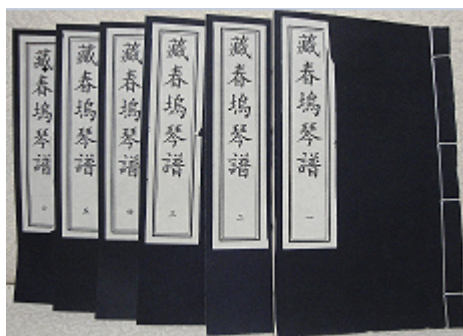 藏春塢琴譜
一
藏春塢琴譜
二
藏春塢琴譜
三
藏春塢琴譜
四
藏春塢琴譜
五
藏春塢琴譜